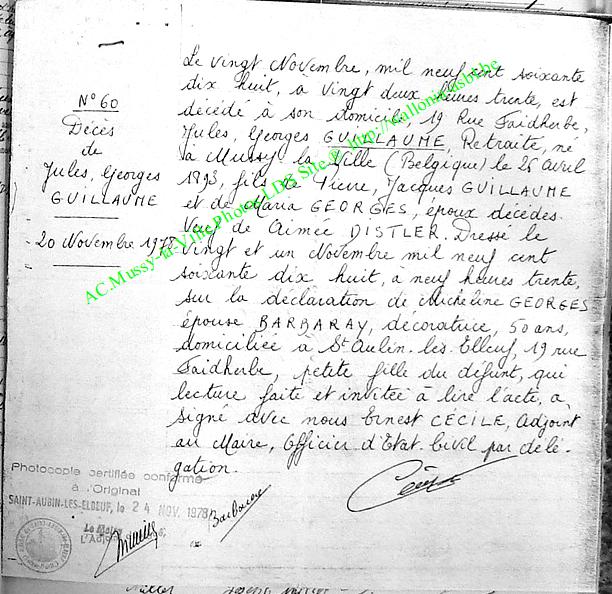 N° 60
Décès
de
Jules, Georges
GUILLAUME
20 Novembre 1978
Le vingt Novembre, mil neuf cent soixante
dix huit, à vingt deux heures trente, est
décédé à son domicile, 19 Rue Faidherbe,
Jules, Georges GUILLAUME, Retraité, né
à Mussy la Ville (Belgique) le 25 avril
1893, fils de Pierre, Jacques GUILLAUME
et de Maria GEORGES, époux décédés.
Veuf de Aimée DISTLER. Dressé le
vingt et un Novembre mil neuf cent
soixante dix huit, à neuf heures trente,
sur la déclaration de Micheline GEORGES
épouse BARBARAY, décoratrice, 50 ans,
domiciliée à St Aubin-les-Elbeuf, 19 rue
Faidherbe, petite fille du défunt, qui
lecture faite et invitée à lire l'acte, a
signé avec nous Ernest CÉCILE, Adjoint
au Maire, Officier d'Etat Civil par délé-
gation.
Photocopie certifiée conforme
à l'Original
SAINT-AUBIN-LES-ELBOEUF, le 24 NOV. 1978
Le Maire
AC.Mussy-la-Ville Photo LDB Site @ http://walloniausb1.be